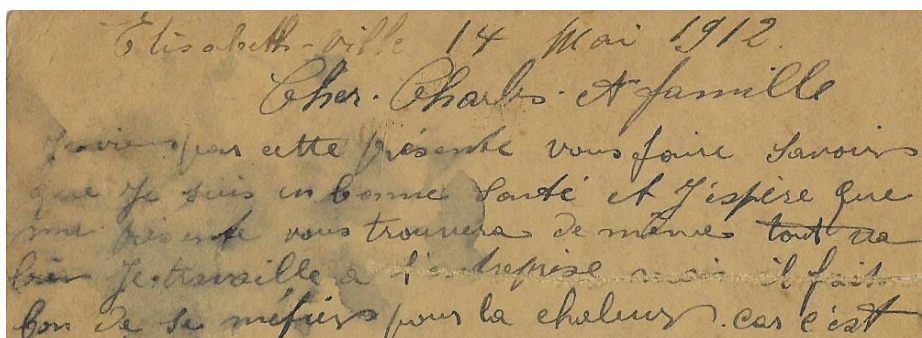 Elisabeth-ville 14 Mai 1912.
Cher. Charles. et famille
Je viens par cette présente vous faire savoir
que Je suis en bonne Santé et J'espère que
ma présente vous trouvera de même tout va
bien Je travaille a l'entreprise mais il fait
bon de se méfier pour la chaleur. car c'est